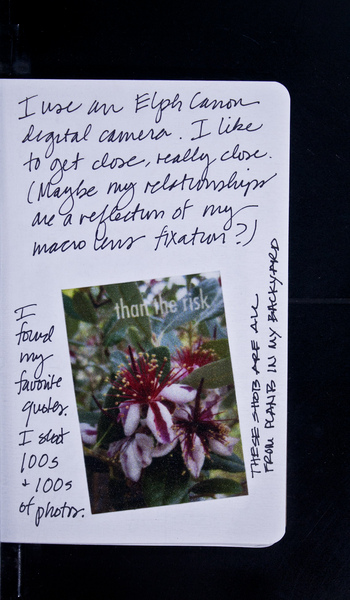 I use an Elph Canon
digital camera. I like
to get close, really close.
(Maybe my relationships
are a reflection of my
macro lens fixation?)
I
found
my
favorite
quotes.
I shot
100s
+ 100s
of photos.
than the risk
THESE SHOTS ARE ALL
FROM PLANTS IN MY BACKYARD